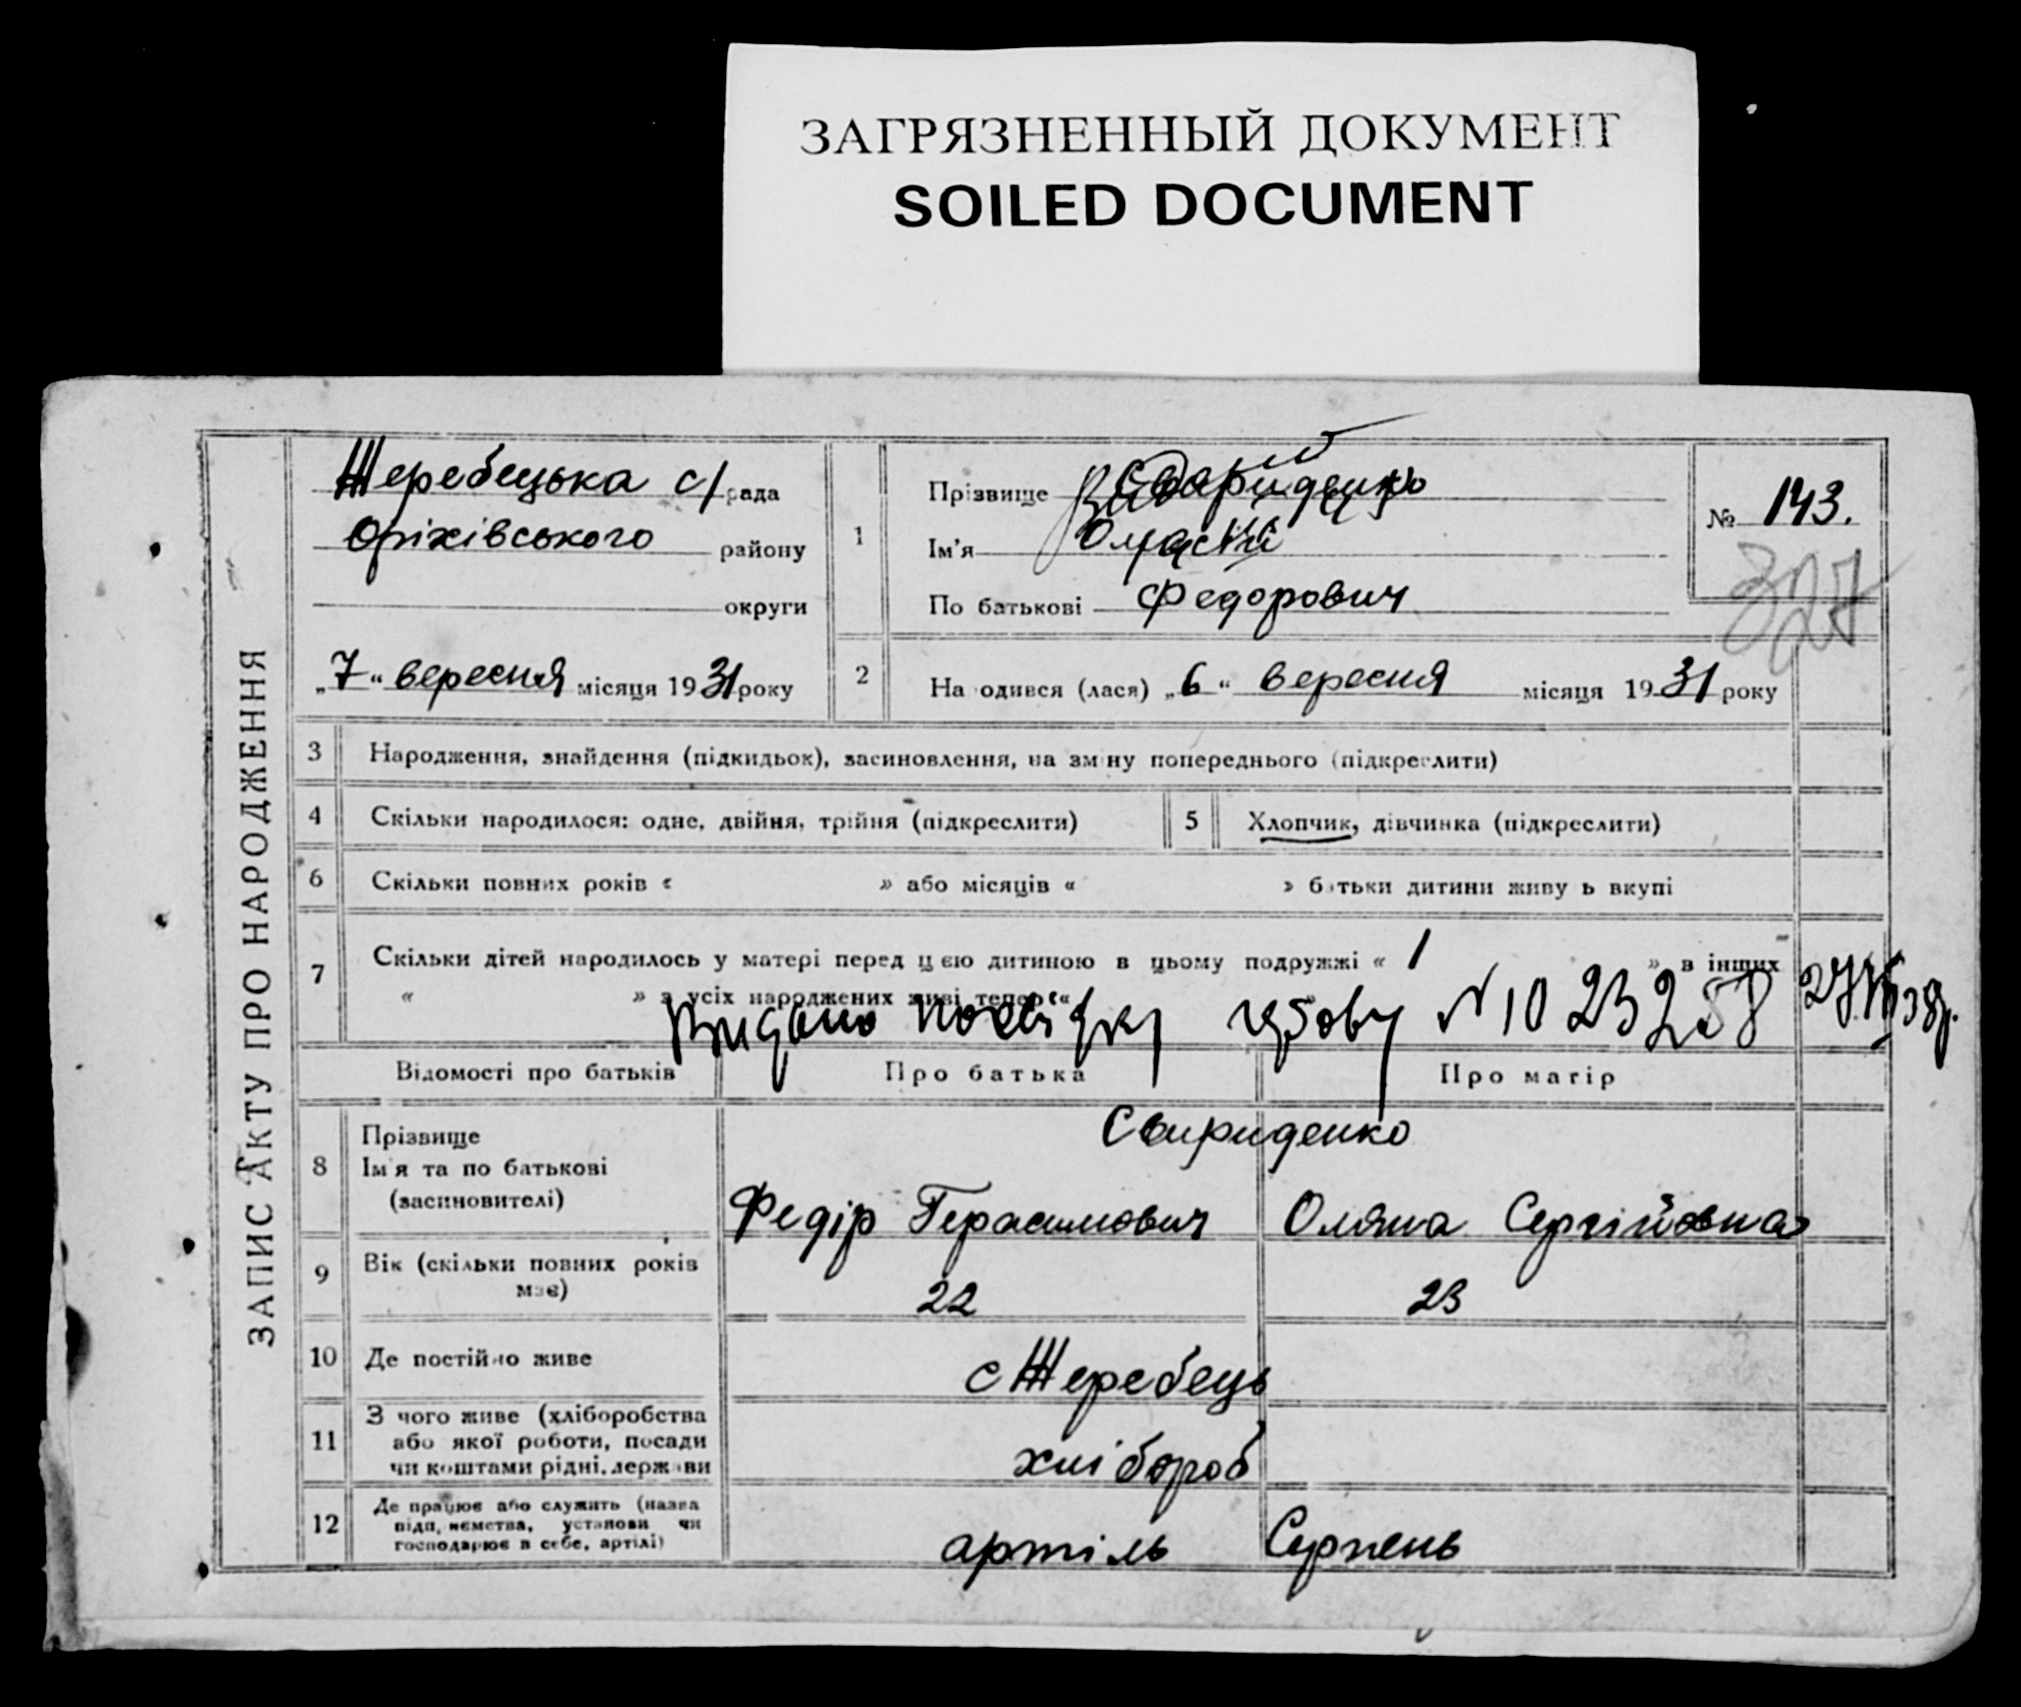 ЗАГРЯЗНЕННЫЙ ДОКУМЕНТ
SOILED DOCUMENT
ЗАПИС АКТУ ПРО НАРОДЖЕННЯ
Жеребецька с/рада
Оріхівського району
округи
„7“ вересня місяця 1931 року
1
Прізвище Свириденко
Ім'я
По батькові Федорович
№ 143.
327
2 На одився (лася) „6“ вересня місяця 1931 року
3 Народження, знайдення (підкидьок), засиновлення, на зміну попереднього (підкреслити)
4 Скільки народилося: одне, двійня, трійня (підкреслити)
5 Хлопчик, дівчинка (підкреслити)
6 Скільки повних років « » або місяців « » батьки дитини живу ь вкупі
7 Скільки дітей народилось у матері перед цією дитиною в цьому подружжі « 1 » в інших
« » з усіх народжених живі тепер «
Видано № 1023258 38р.
Відомості про батьків Про батька Про матір
8 Прізвище
Ім'я та по батькові
(засиновителі)
Свириденко
Федір Герасимович Оляна Сергійовна
9 Вік (скільки повних років має) 22 23
10 Де постійно живе с Жеребець
11 З чого живе (хліборобства
або якої роботи, посади
чи коштами рідні, держави
хлібороб
12 Де працює або служить (назва
підприємства, установи чи
господарює в себе, артілі)
артіль Серпень